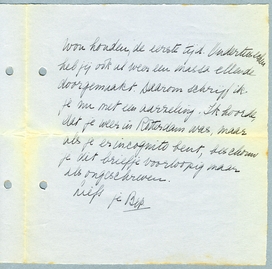 won houden, de eerste tijd. Ondertussen
heb jij ook al weer een massa ellende
doorgemaakt. Daarom schrijf ik
je nu met een aarzeling. Ik hoorde,
dat je weer in Rotterdam was, maar
als je er incognito bent, beschouw
je dit briefje voorloopig maar
als ongeschreven.
Liefs je Bep